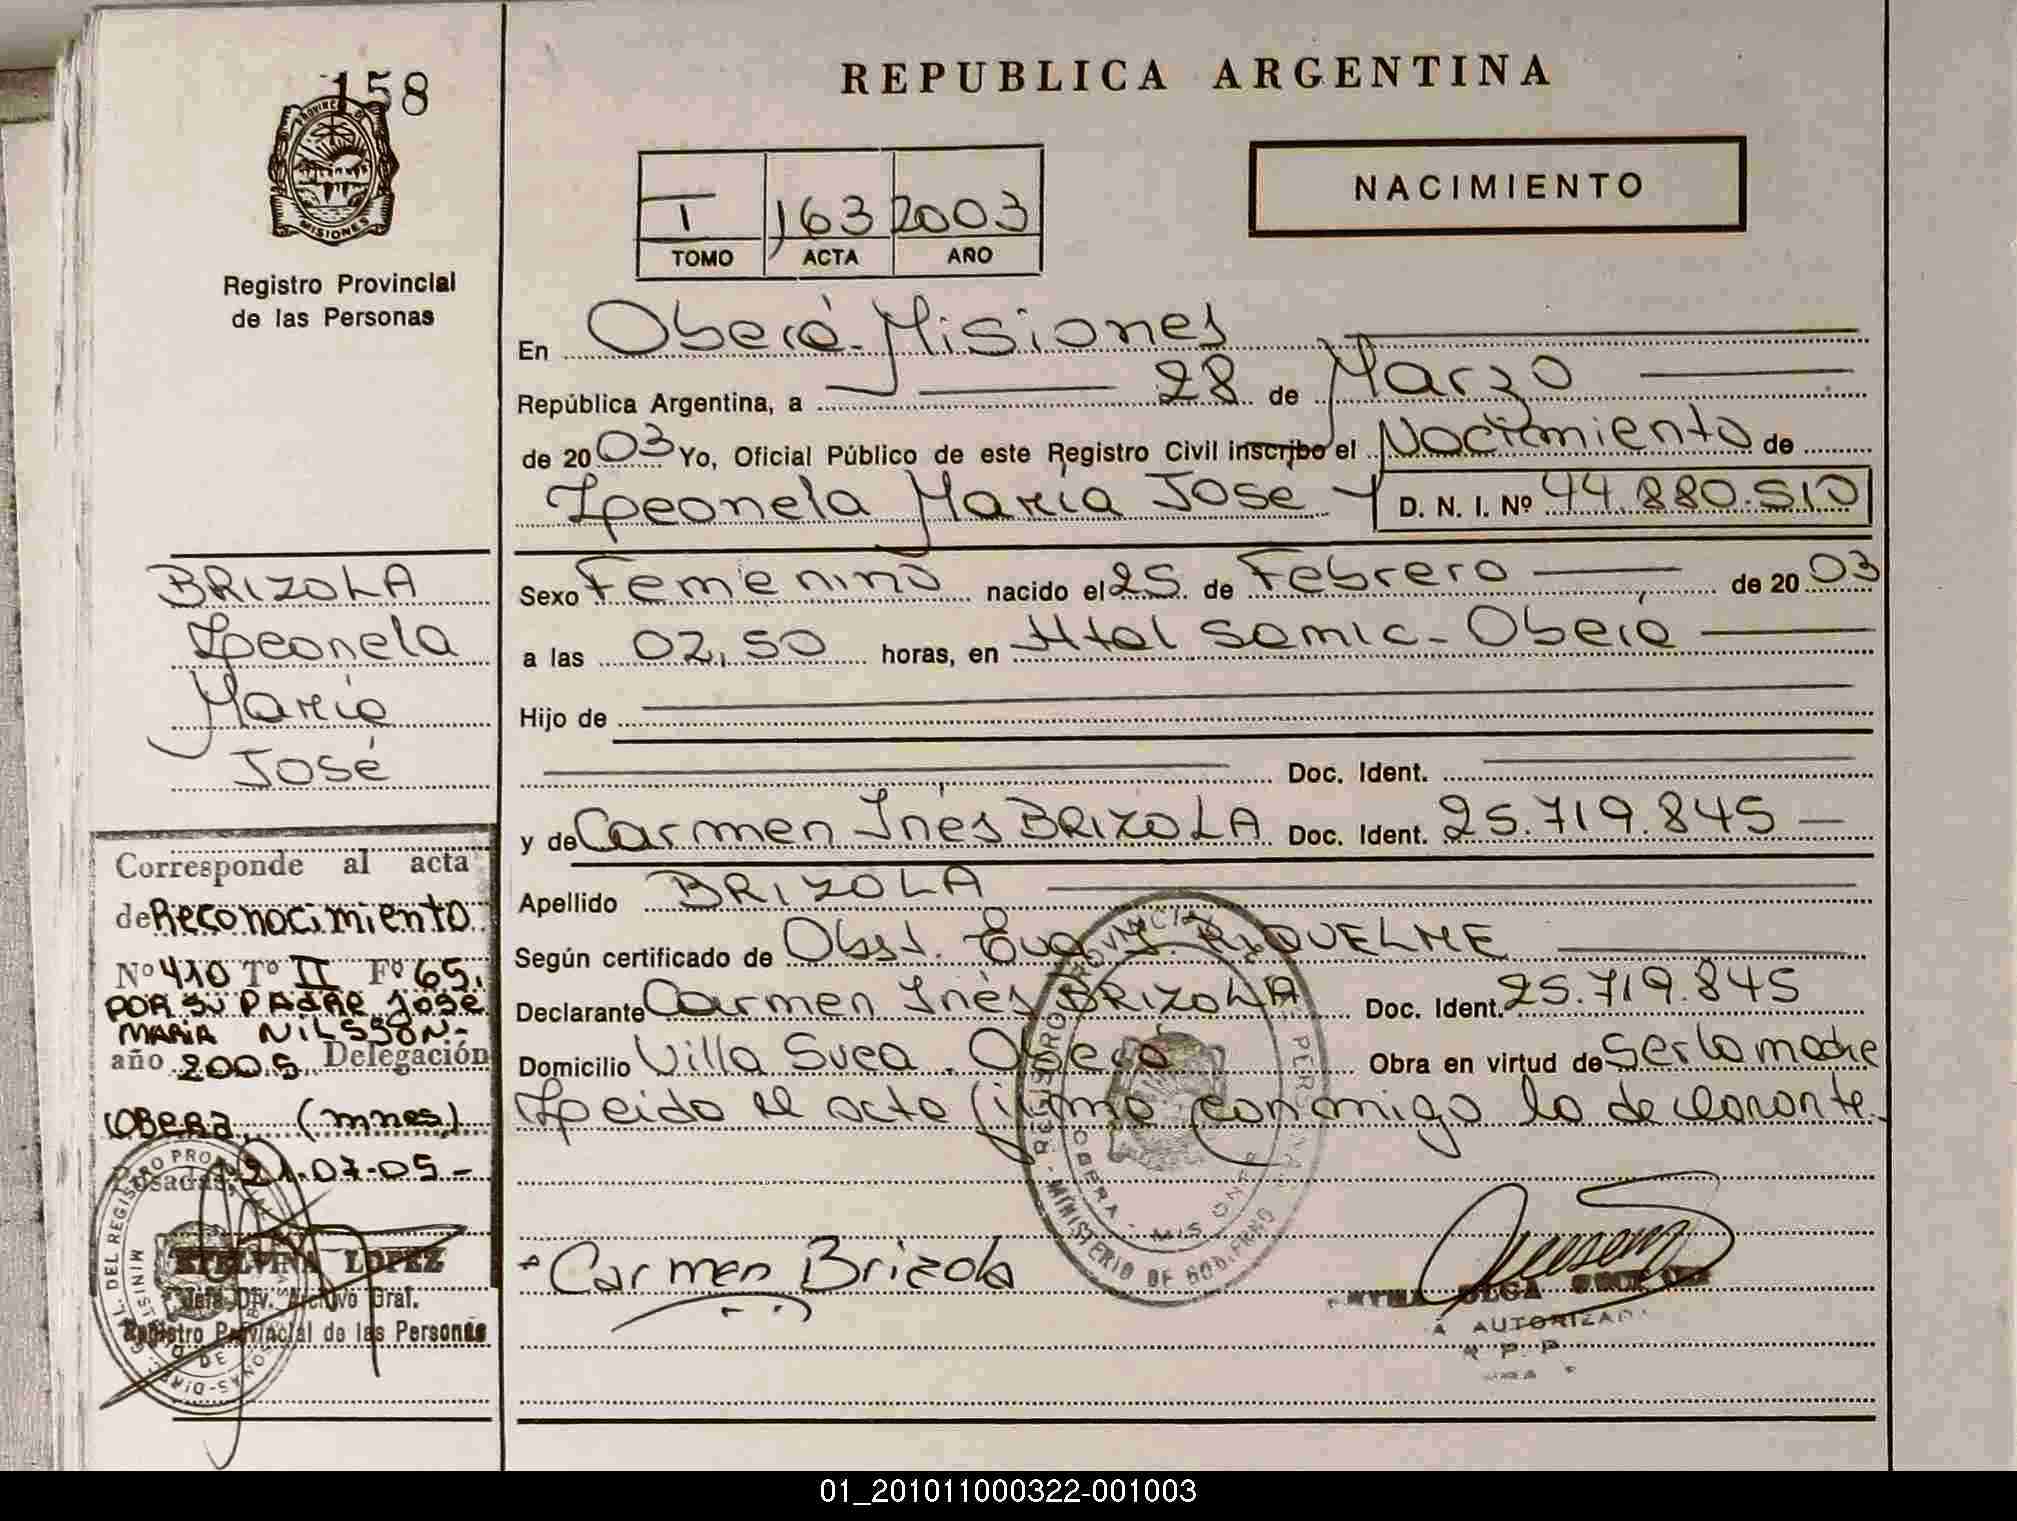 158
REPUBLICA ARGENTINA
PROVINCIA DE
MISIONES
Registro Provincial
de las Personas
NACIMIENTO
I 163 2003
TOMO ACTA AÑO
En Oberá-Misiones
República Argentina, a 28 de Marzo
de 2003 Yo, Oficial Público de este Registro Civil inscribo el Nacimiento de
Leonela María Jose D. N. I. Nº 44.880.510
BRIZOLA
Leonela
María
José
Sexo Femenino nacido el 25 de Febrero de 2003
a las 02,50 horas, en Htal Samic-Oberá
Hijo de
Doc. Ident.
y de Carmen Inés BRIZOLA Doc. Ident. 25.719.845
Apellido BRIZOLA
Según certificado de Obst. Eva RIQUELME
Declarante Carmen Inés BRIZOLA Doc. Ident. 25.719.845
Domicilio Villa Svea. Oberá Obra en virtud de ser la madre
Leida el acta firma conmigo la declarante.
Corresponde al acta
de Reconocimiento
Nº 410 Tº II Fº 65,
POR SU PADRE José
MARIA NILSSON-
año 2005 Delegación
OBERA (mnes)
Posadas, 21-07-05-
ETELVINA LOPEZ
Jefa Div. Archivo Gral.
Registro Provincial de las Personas
Carmen Brizola
REGISTRO PROVINCIAL
MINISTERIO DE GOBIERNO
OBERA - MISIONES
OLGA
AUTORIZADA
01_201011000322-001003